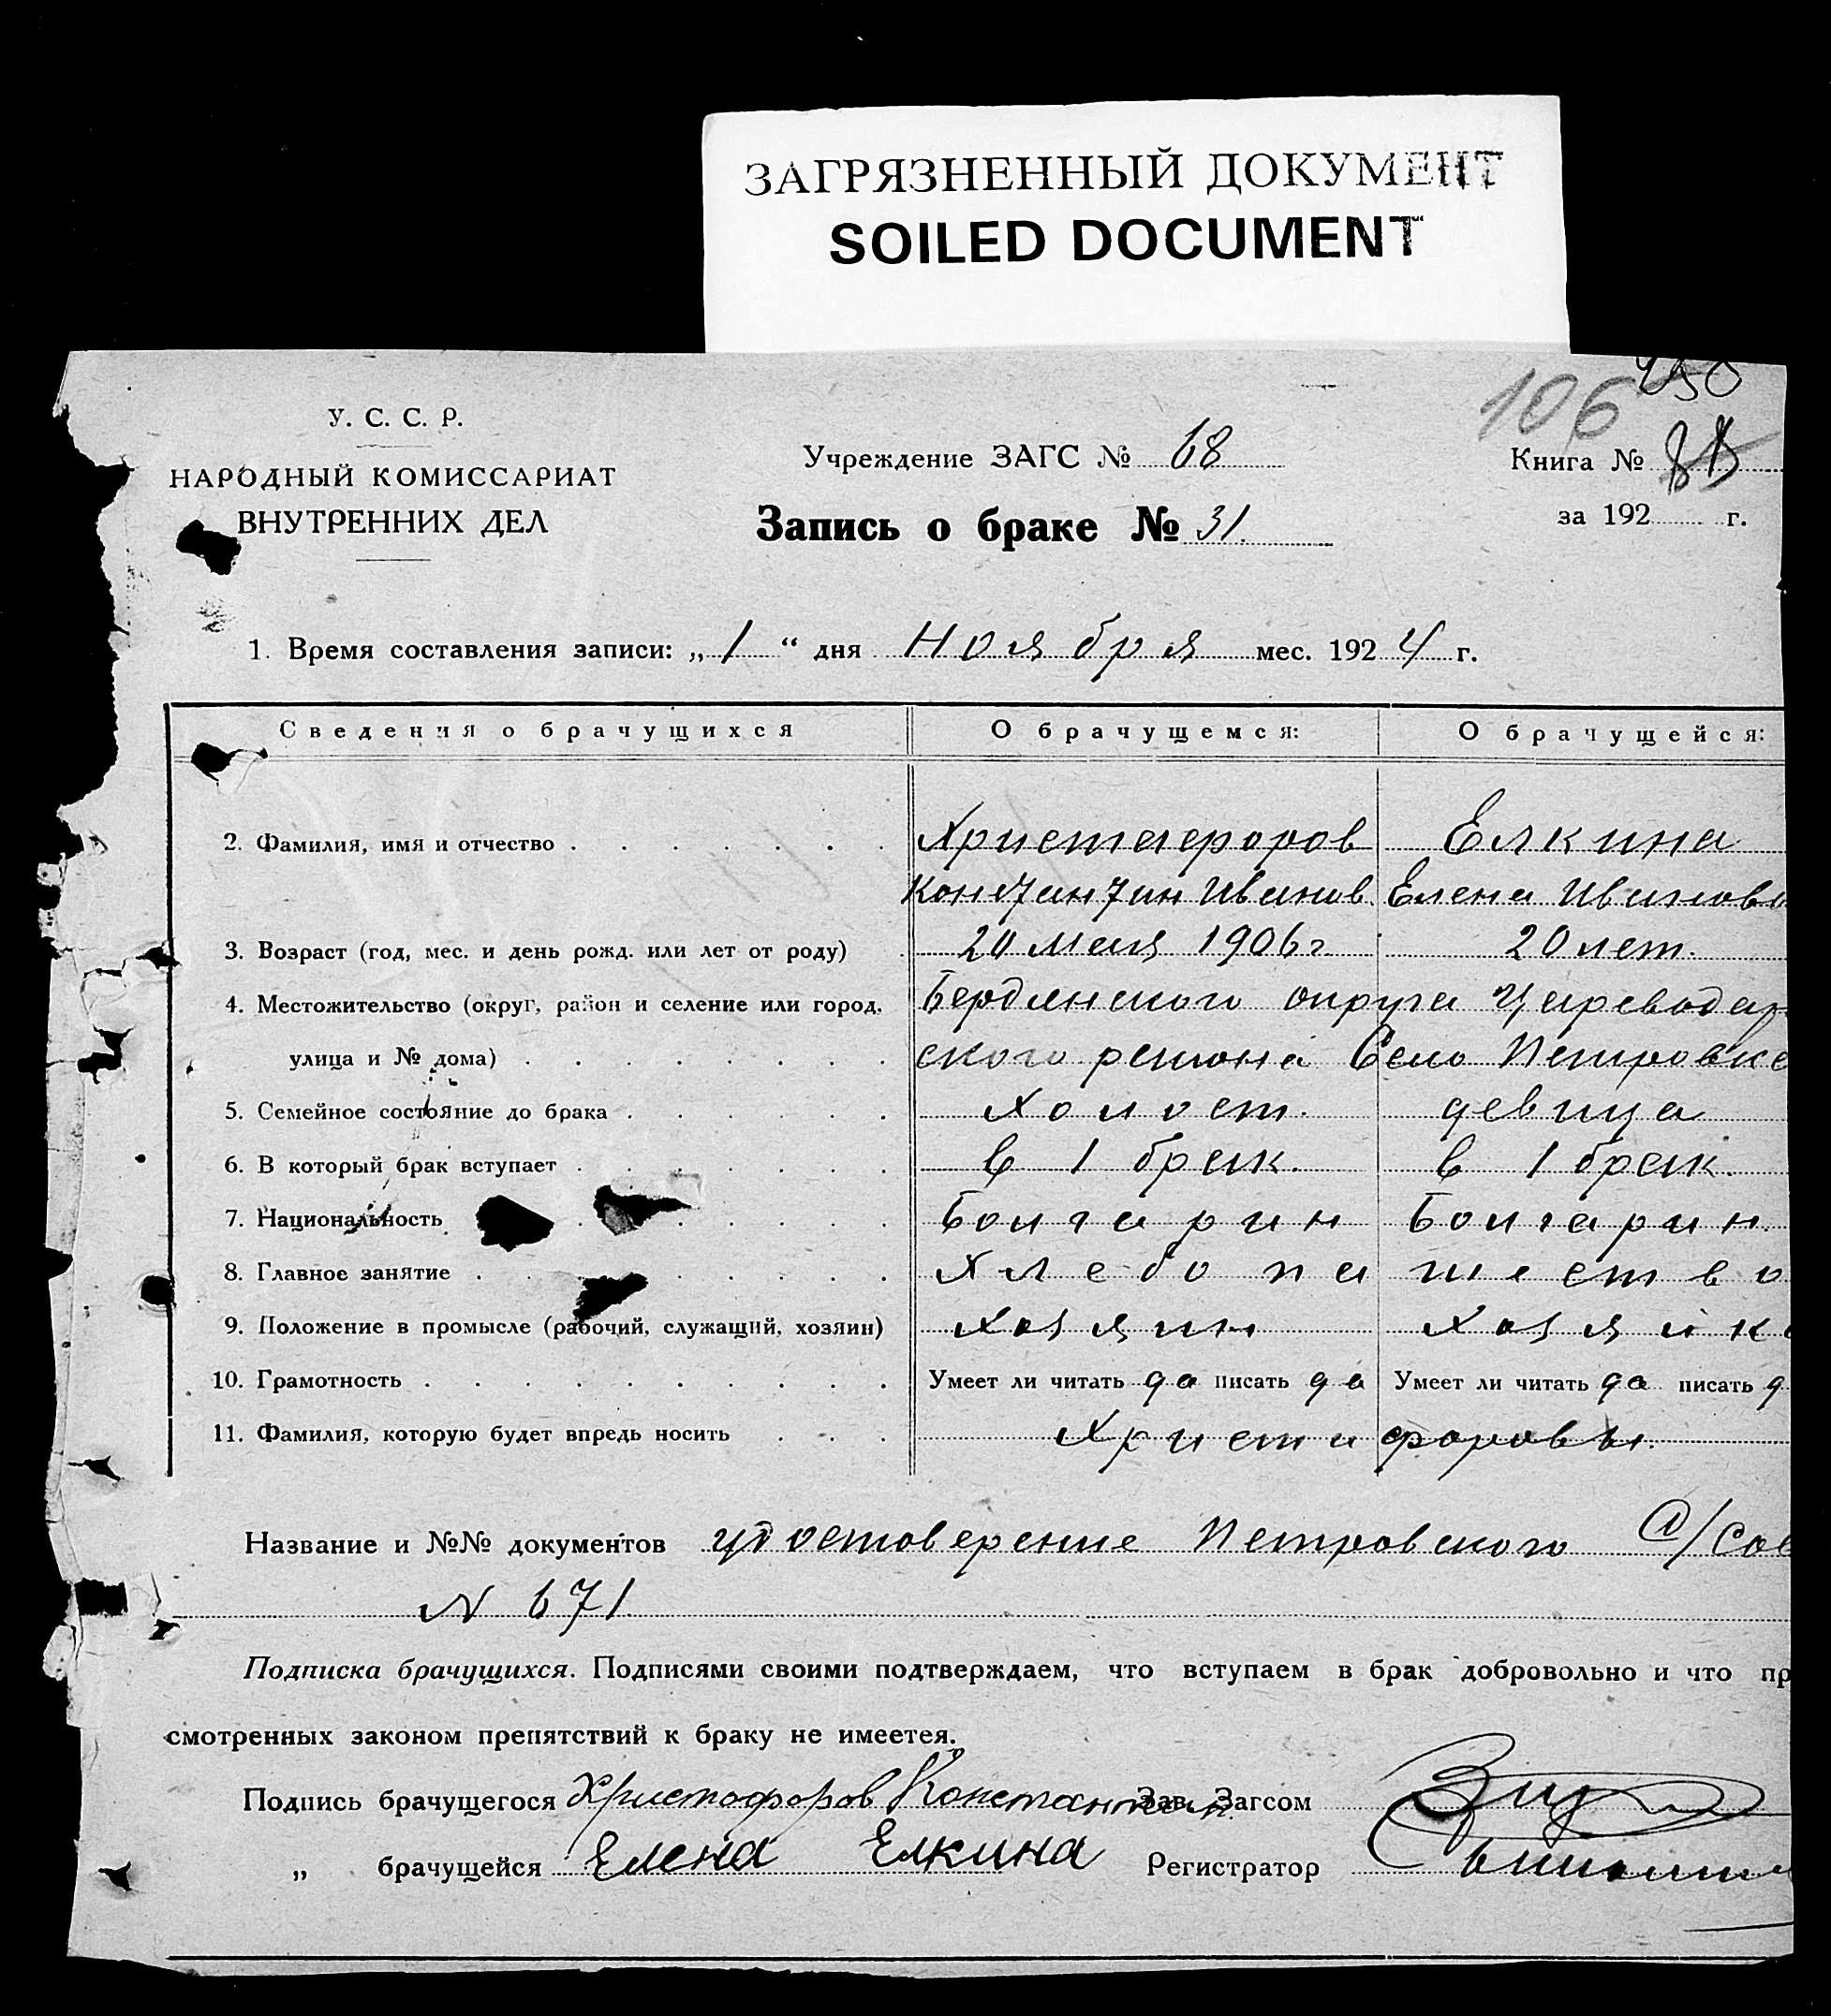 ЗАГРЯЗНЕННЫЙ ДОКУМЕНТ
SOILED DOCUMENT
106
У. С. С. Р.
НАРОДНЫЙ КОМИССАРИАТ
ВНУТРЕННИХ ДЕЛ
Учреждение ЗАГС № 68
Книга №
Запись о браке № 31.
за 192 г.
1. Время составления записи: „ 1 “ дня Ноября мес. 1924 г.
Сведения о брачущихся О брачущемся: О брачущейся:
2. Фамилия, имя и отчество Христафоров Елкина
Константин Иванов. Елена Иванова
3. Возраст (год, мес. и день рожд. или лет от роду) 20 мая 1906 г. 20 лет.
4. Местожительство (округ, район и селение или город, Бердянского округа Цареводар
улица и № дома) ского района Село Петровка
5. Семейное состояние до брака Холост. девица
6. В который брак вступает в 1 брак. в 1 брак.
7. Национальность Болгарин Болгарин.
8. Главное занятие Хлебопашество
9. Положение в промысле (рабочий, служащий, хозяин) Хозяин Хозяйка
10. Грамотность Умеет ли читать да писать да Умеет ли читать да писать д
11. Фамилия, которую будет впредь носить Христафоровы.
Название и №№ документов удостоверение Петровского С/Сов
N 671
Подписка брачущихся. Подписями своими подтверждаем, что вступаем в брак добровольно и что пр
смотренных законом препятствий к браку не имеетея.
Подпись брачущегося Христофоров Константин Зав. Загсом
„ брачущейся Елена Елкина Регистратор